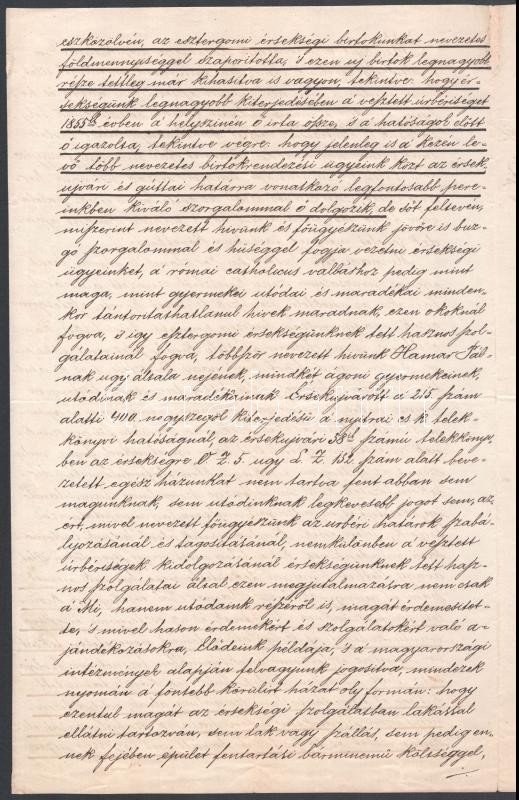 eszközölvén, az esztergomi érsekségi birtokunkat nevezetes
földmennyiséggel szaporitotta, s ezen uj birtok legnagyobb
része tettleg már kihasitva is vagyon, tekintve: hogy ér-
sekségünk legnagyobb kiterjedésében á vesztett úrbériséget
1855 évben á helyszinén ő irta össze, s á hatóságok előtt
ő igazolta, tekintve végre: hogy jelenleg is á kezén le-
vő több nevezetes birtokrendezési ügyeink közt az érsek-
ujvári és guttai határra vonatkozó legfontosabb pere-
inkben kiváló szorgalommal ő dolgozik, de sőt feltevén,
miszerint nevezett hivünk és főügyészünk jövőre is buz-
gó szorgalommal és hűséggel fogja vezetni érsekségi
ügyeinket, á római catholicus valláshoz pedig mint
maga, mint gyermekei utódai és maradékai minden-
kor tántorithatlanul hivek maradnak, ezen okoknál
fogva, s igy esztergomi érsekségünknek tett hasznos szol-
gálatainál fogva, többször nevezett hivünk Hamar Pál-
nak ugy általa nejének, mindkét ágoni gyermekeinek,
utódinak és maradékainak Érsekujvárott á 215 szám
alatti 400 négyszegöl kiterjedésü á nyitrai cs k telek-
könyvi hatóságnál, az érsekujvári 58 számu telekköny-
ben az érsekségre O Z. 5. ugy L. Z. 152 szám alatt beve-
zetett egész házunkat nem tartva fent abban sem
magunknak, sem utódinknak legkevesebb jogot sem, az-
ért, mivel nevezett főügyészünk az urbéri határok szabá-
lyozásánál és tagositásánál, nemkülönben á vesztett
úrbériségek kidolgozásánál érsekségünknek tett hasz-
nos szolgálatai által ezen megjutalmazásra nem csak
á Mi, hanem utódaink részéről is, magát érdemesitet-
te, s mivel hason érdemekért és szolgálatokért való a-
jándékozásokra, Elődeink példája, s á magyarországi
intézmények alapján felvagyunk jogositva, mindezek
nyomán á fentebb körülirt házat oly formán: hogy
ezentul magát az érsekségi szolgálatban lakással
ellátni tartozván, sem lak vagy szállás, sem pedig en-
nek fejében épület fentartási bárminemü költséggel,